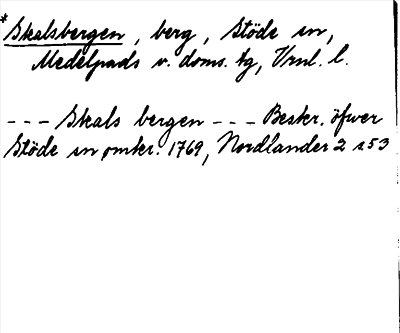 *Skalsbergen, berg, Stöde sn,
Medelpads v. doms. tg, Vrnl. l.
--- Skals bergen --- Beskr. öfwer
Stöde sn omkr. 1769, Nordlander 2 s 53